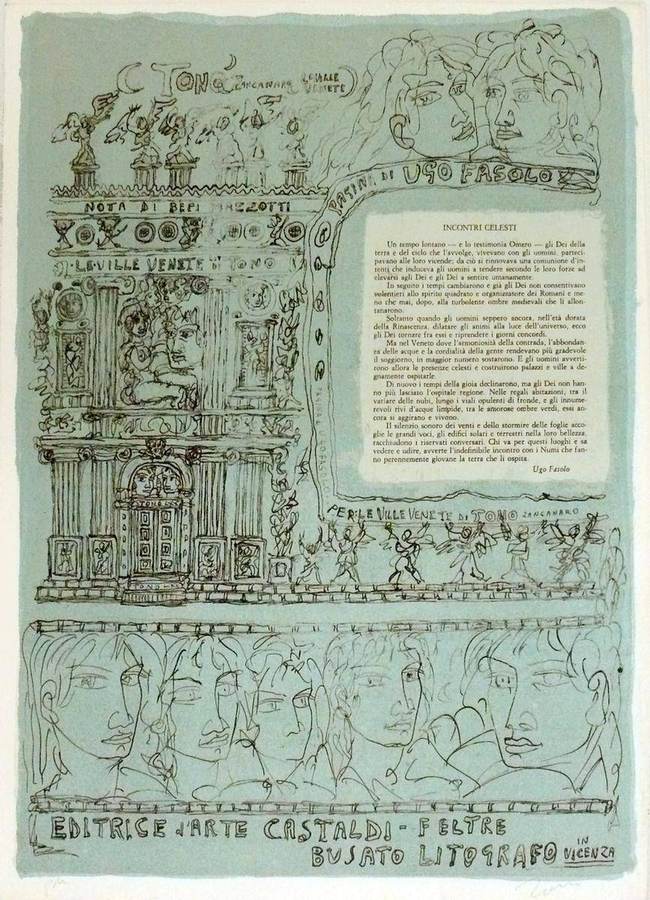 TONO ZANCANARO LE VILLE
VENETE
PAGINA DI UGO FASOLO
NOTA DI BEPI MAZZOTTI
LE VILLE VENETE DI TONO
INCONTRI CELESTI
Un tempo lontano — e lo testimonia Omero — gli Dei della
terra e del cielo che l'avvolge, vivevano con gli uomini, parteci-
pavano alle loro vicende; da ciò si rinnovava una comunione d'in-
tenti che induceva gli uomini a tendere secondo le loro forze ad
elevarsi agli Dei e gli Dei a sentire umanamente.
In seguito i tempi cambiarono e già gli Dei non consentivano
volentieri allo spirito quadrato e organizzatore dei Romani e me-
no che mai, dopo, alla turbolente ombre medievali che li allon-
tanarono.
Soltanto quando gli uomini seppero ancora, nell'età dorata
della Rinascenza, dilatare gli animi alla luce dell'universo, ecco
gli Dei tornare fra essi e riprendere i giorni concordi.
Ma nel Veneto dove l'armoniosità della contrada, l'abbondan-
za delle acque e la cordialità della gente rendevano più gradevole
il soggiorno, in maggior numero sostarono. E gli uomini avverti-
rono allora le presenze celesti e costruirono palazzi e ville a de-
gnamente ospitarle.
Di nuovo i tempi della gioia declinarono, ma gli Dei non han-
no più lasciato l'ospitale regione. Nelle regali abitazioni, tra il
variare delle nubi, lungo i viali opulenti di fronde, e gli innume-
revoli rivi d'acque limpide, tra le amorose ombre verdi, essi an-
cora si aggirano e vivono.
Il silenzio sonoro dei venti e dello stormire delle foglie acco-
glie le grandi voci, gli edifici solari e terrestri nella loro bellezza
racchiudono i riservati conversari. Chi va per questi luoghi e sa
vedere e udire, avverte l'indefinibile incontro con i Numi che fan-
no perennemente giovane la terra che li ospita.
Ugo Fasolo
PER LE VILLE VENETE DI TONO ZANCANARO
EDITRICE d'ARTE CASTALDI - FELTRE
BUSATO LITOGRAFO IN VICENZA